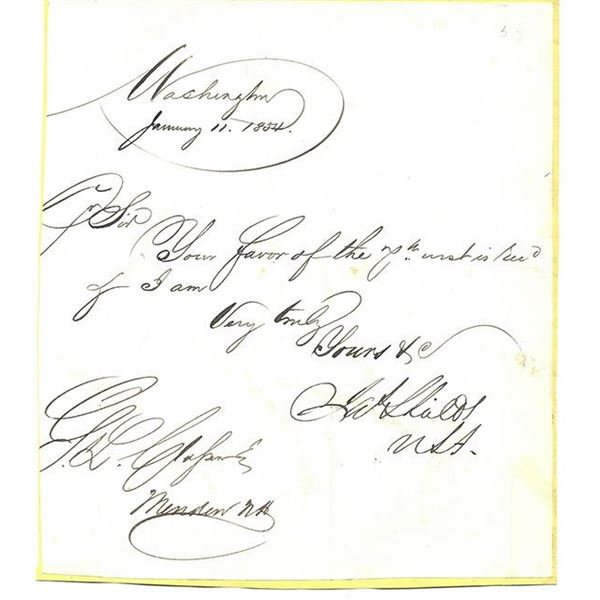 Washington
January 11. 1854.
Dr Sir
Your favor of the 7th. inst is Recd
& I am
Very truly
Yours &c
Jas Shields
U.S.S.
G. L.
Meriden NH